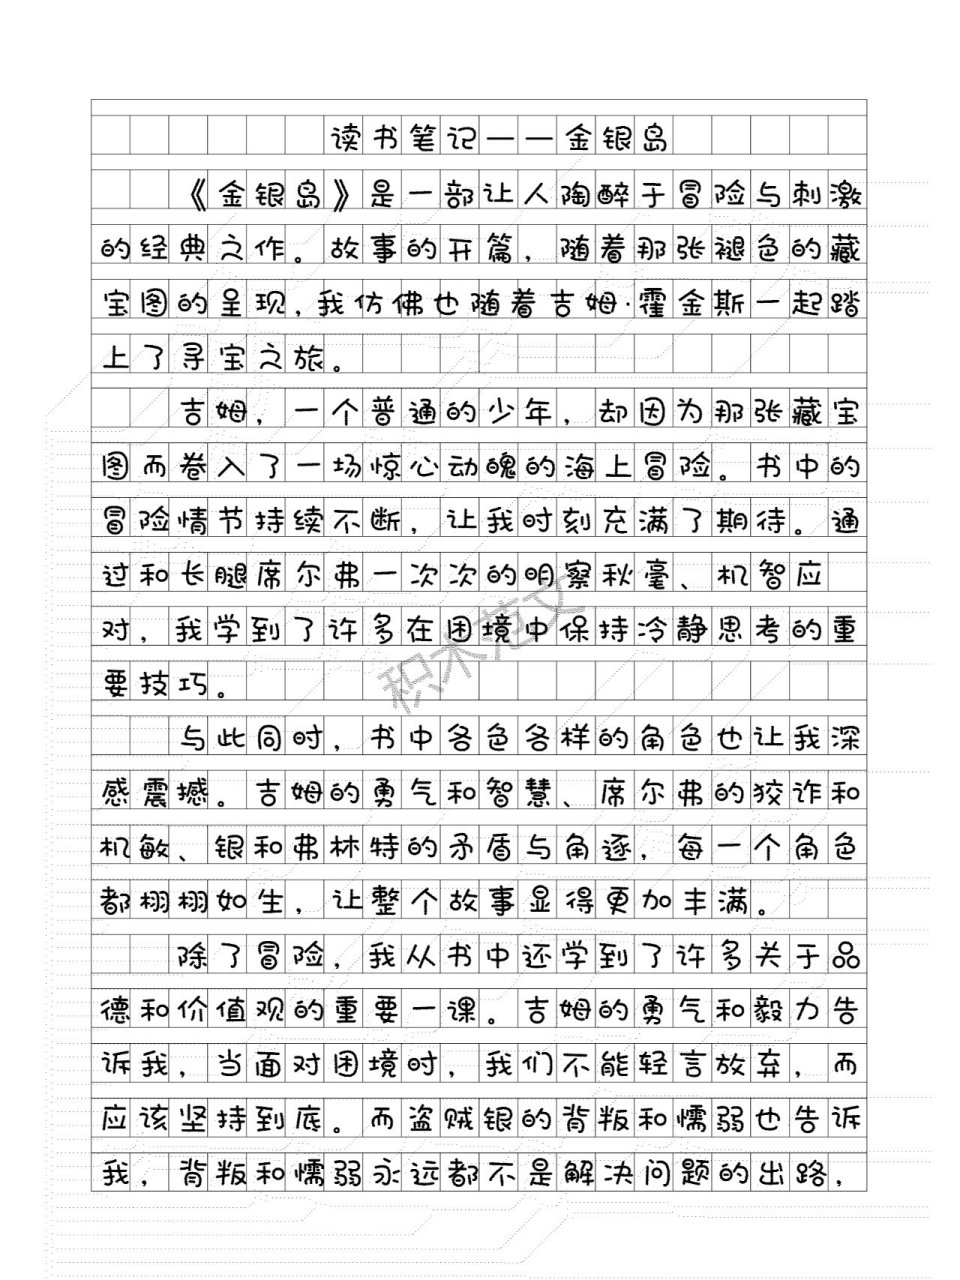 读书笔记——金银岛
《金银岛》是一部让人陶醉于冒险与刺激
的经典之作。故事的开篇，随着那张褪色的藏
宝图的呈现，我仿佛也随着吉姆·霍金斯一起踏
上了寻宝之旅。
吉姆，一个普通的少年，却因为那张藏宝
图而卷入了一场惊心动魄的海上冒险。书中的
冒险情节持续不断，让我时刻充满了期待。通
过和长腿席尔弗一次次的明察秋毫、机智应
对，我学到了许多在困境中保持冷静思考的重
要技巧。
与此同时，书中各色各样的角色也让我深
感震撼。吉姆的勇气和智慧、席尔弗的狡诈和
机敏、银和弗林特的矛盾与角逐，每一个角色
都栩栩如生，让整个故事显得更加丰满。
除了冒险，我从书中还学到了许多关于品
德和价值观的重要一课。吉姆的勇气和毅力告
诉我，当面对困境时，我们不能轻言放弃，而
应该坚持到底。而盗贼银的背叛和懦弱也告诉
我，背叛和懦弱永远都不是解决问题的出路，
积木范文